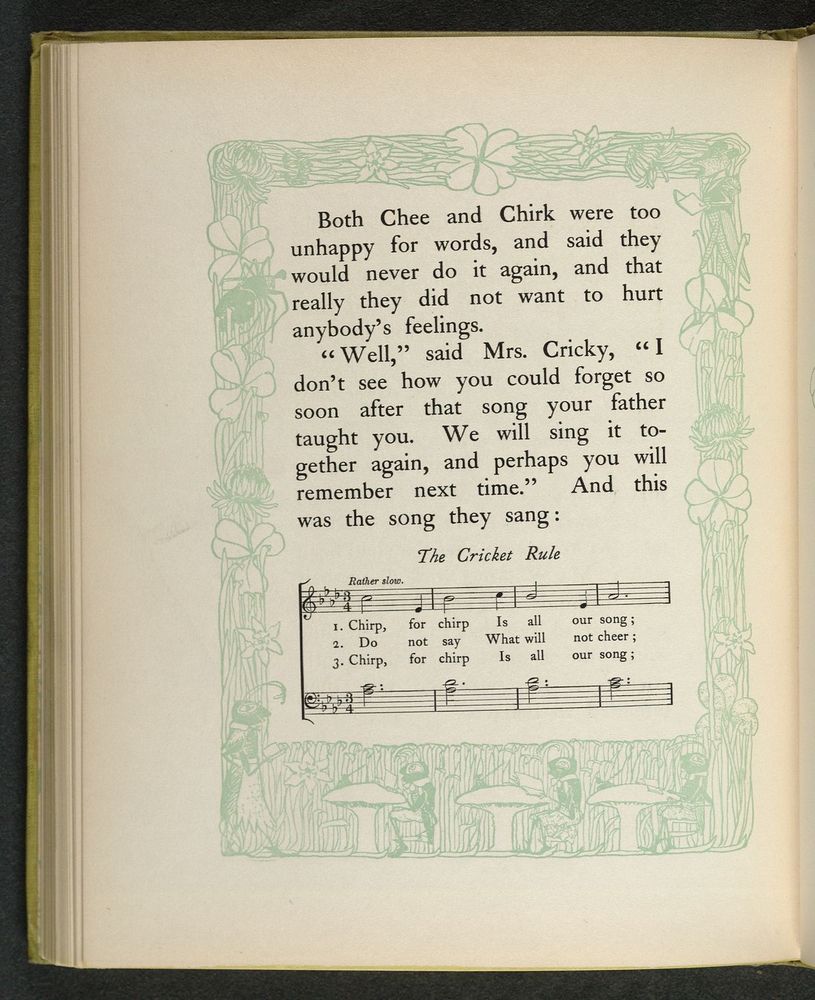 Both Chee and Chirk were too
unhappy for words, and said they
would never do it again, and that
really they did not want to hurt
anybody's feelings.
“Well,” said Mrs. Cricky, “I
don't see how you could forget so
soon after that song your father
taught you. We will sing it to-
gether again, and perhaps you will
remember next time.” And this
was the song they sang:
The Cricket Rule
Rather slow.
3
4
1. Chirp, for chirp Is all our song;
2. Do not say What will not cheer;
3. Chirp, for chirp Is all our song;
3
4